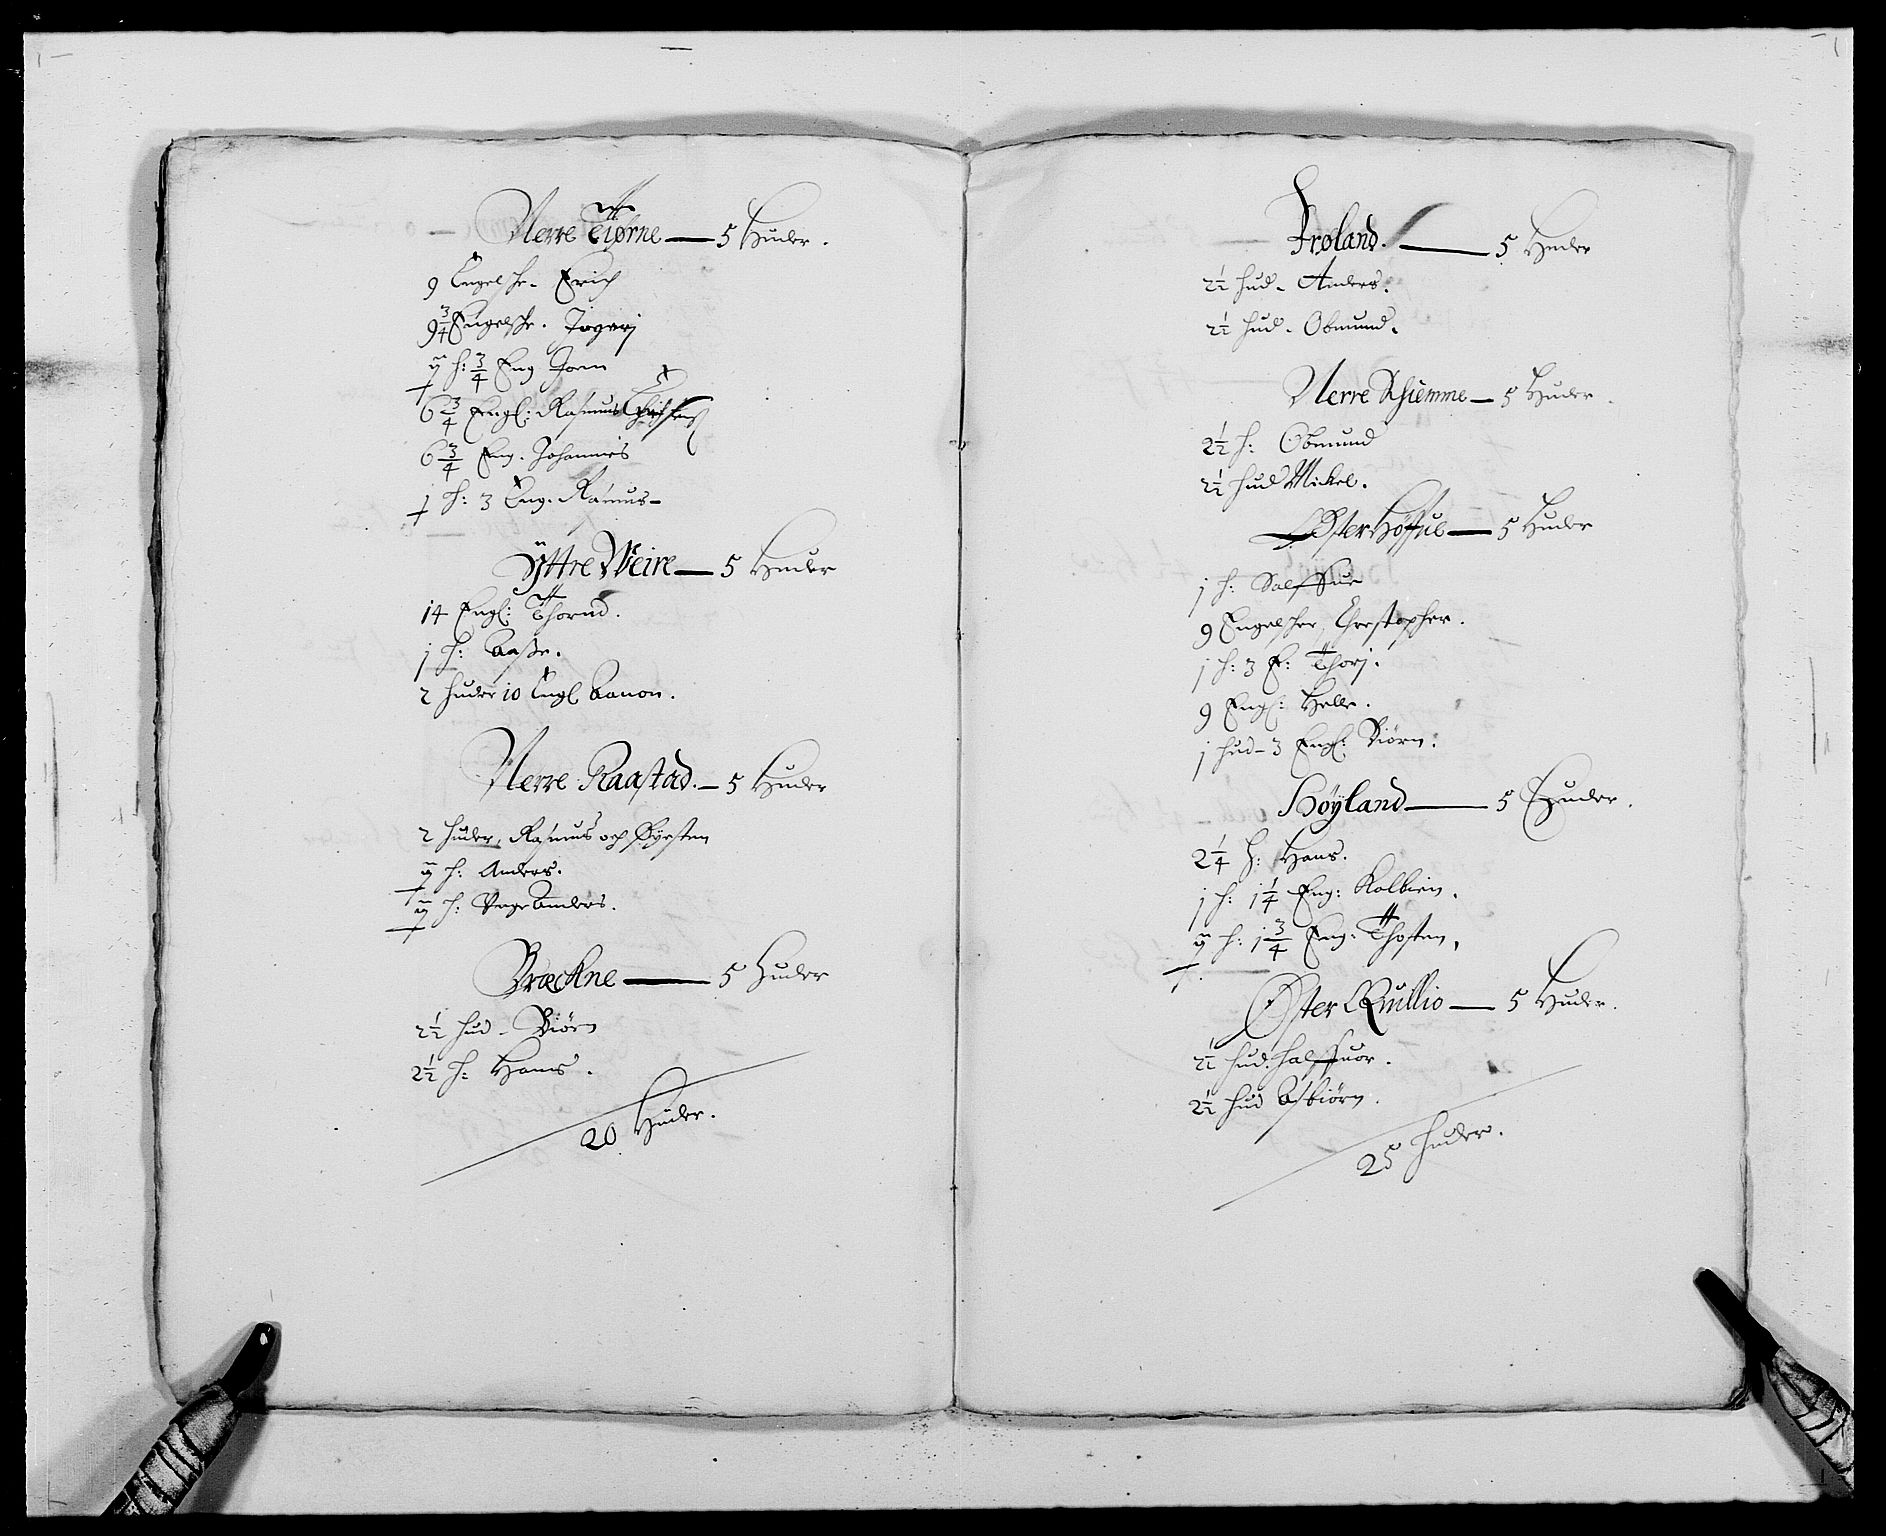 Nerre Tiørne — 5 Huder.
9 Engelske - Erich
9 3/4 Engelske. Togerj
ij h: 3/4 Eng Joen
6 3/4 Engl: Rasmus Christens
6 3/4 Eng. Johannis
j h: 3 Eng. Rasmus -
Ÿttre Weire — 5 Huder
14 Engl: Thorud.
j h: Aasse.
2 huder 10 Engl Aanon.
Nerre Raastad. — 5 Huder
2 huder, Rasmus och Siyrsten
h: Anders.
h: Unge Anders.
Bræckne — 5 Huder
2 1/2 hud - Biörn
2 1/2 h: Hans.
20 Huder.
Froland. — 5 Huder
2 1/2 hud - Anders.
2 1/2 hud - Obmund.
Nerre Khiemme — 5 Huder.
2 1/2 h: Obmund
2 1/2 hud Mickel.
Øster Høffue — 5 Huder
j h: Salffue
9 Engelsker, Chrestopher.
j h: 3 E: Thorj.
9 Engl: Helle.
j hud - 3 Engl: Biörn.
Høyland — 5 Huder.
2 1/4 h: Hans.
j h: 1 1/4 Eng: Kolbien.
h: 1 3/4 Eng: Thosten,
Øster Quillio — 5 Huder.
2 1/2 hud. halffuor.
2 1/2 hud Asbiörn.
25 huder.